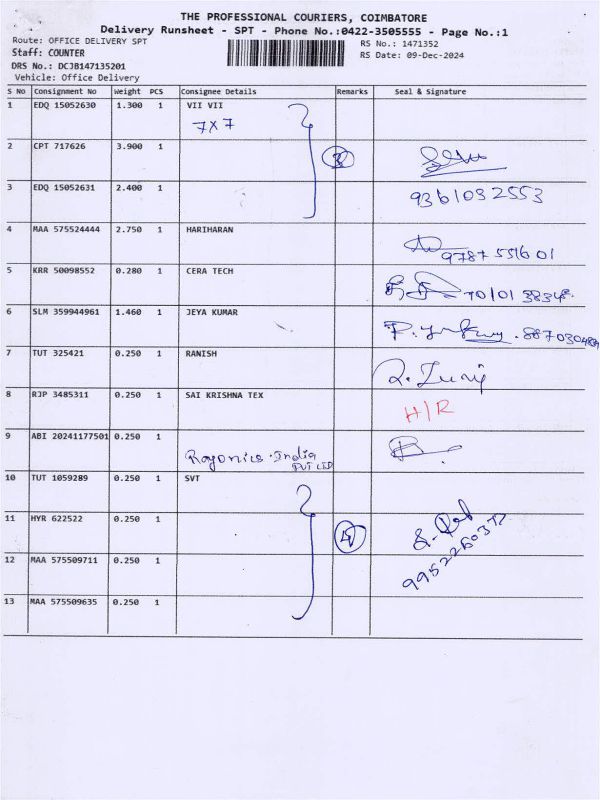 THE PROFESSIONAL COURIERS, COIMBATORE
Delivery Runsheet - SPT - Phone No.:0422-3505555 - Page No.:1
Route: OFFICE DELIVERY SPT
RS No.: 1471352
Staff: COUNTER
RS Date: 09-Dec-2024
DRS No.: DCJB147135201
Vehicle: Office Delivery
S No Consignment No Weight PCS Consignee Details Remarks Seal & Signature
1 EDQ 15052630 1.300 1 VII VII
7x7
2 CPT 717626 3.900 1
3
3 EDQ 15052631 2.400 1
9361032553
4 MAA 575524444 2.750 1 HARIHARAN
5 KRR 50098552 0.280 1 CERA TECH
6 SLM 359944961 1.460 1 JEYA KUMAR
7 TUT 325421 0.250 1 RANISH
8 RJP 3485311 0.250 1 SAI KRISHNA TEX
H/R
9 ABI 20241177501 0.250 1
India
PVT LTD
10 TUT 1059289 0.250 1 SVT
11 HYR 622522 0.250 1 4
12 MAA 575509711 0.250 1
13 MAA 575509635 0.250 1